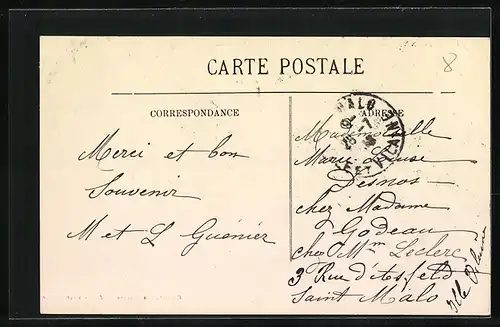 8
CARTE POSTALE
CORRESPONDANCE
ADRESSE
MALO
ET VILAINE
Merci et bon
Souvenir
M et L Guenier
Mademoiselle
Marie Louise
Desnos
chez Madame
Godeau
chez Mme Leclerc
3 Rue d'Asfeld
Saint Malo
Ille